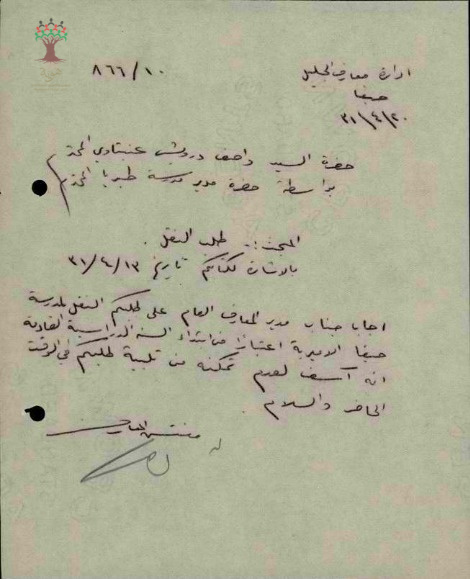 ٨٦٦/١٠
ادارة معارف الجليل
حيفا
٣١/٤/٢٠
حضرة السيد واصف درويش عنبتاوي المحترم
بواسطة حضرة مدير مدرسة طبريا المحترم
المبحث :- طلب النقل .
بالاشارة لكتابكم تاريخ ٣١/٤/١٣
اجابا جناب مدير المعارف العام على طلبكم النقل لمدرسة
حيفا الاميرية اعتبارا من ابتداء السنة الدراسية القادمة
انه آسف لعدم تمكنه من تلبية طلبكم في الوقت
الحاضر والسلام .
مفتش المعارف